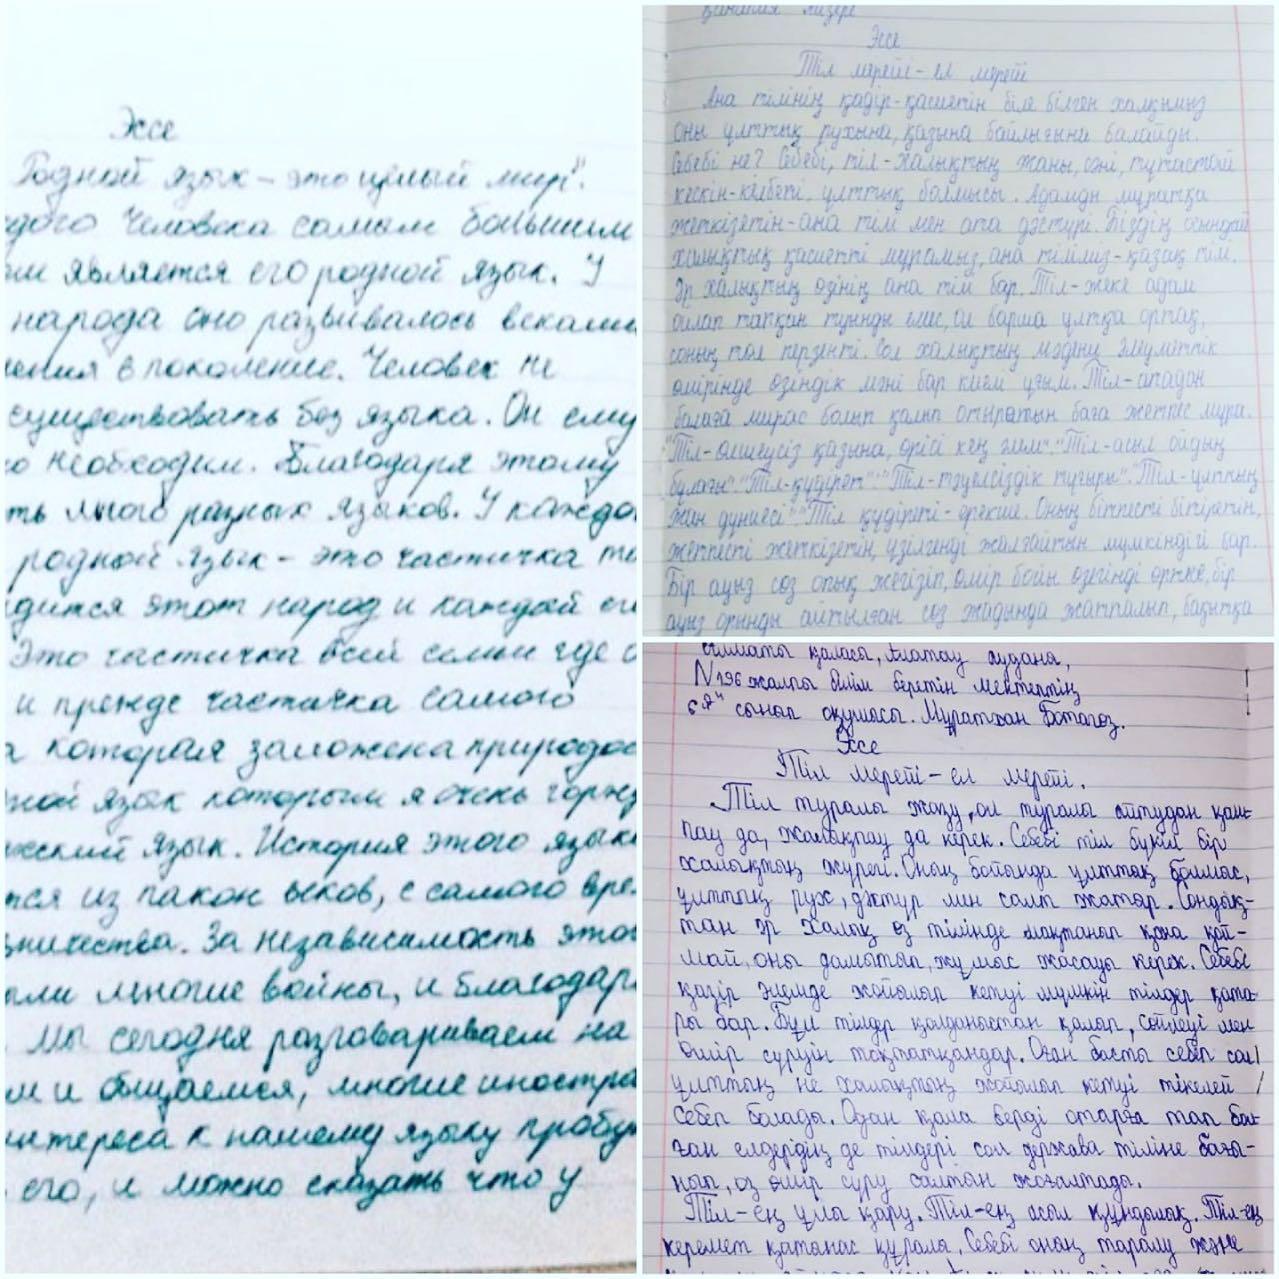 Эссе
Родной язык – это целый мир".
дого человека самым большим
ом является его родной язык. У
народа оно развивалось веками,
ения в поколение. Человек не
существовать без языка. Он ему
о необходим. Благодаря этому
ть много разных языков. У каждо
родной язык – это частичка
дится этот народ и каждой его
Это частичка всей семьи где
и прежде частичка самого
а которая заложена природой
ной язык которым я очень горж
жский язык. История этого языка
тся из покон веков, с самого вре
вничества. За независимость этог
ыли многие войны, и благодар
Мы сегодня разговариваем на
м и общаемся, многие иностра
интереса к нашему языку пробу
его, и можно сказать что у
Эссе
Тіл мерейі – ел мерейі
Ана тілінің қадір-қасиетін біле білген халқымыз
оны ұлттық рухына, қазына байлығына балайды.
Себебі не? Себебі, тіл-халықтың жаны, сәні, тұтастай
кескін-келбеті, ұлттық болмысы. Адамды мұратқа
жеткізетін-ана тілі мен ата дәстүрі. Біздің осындай
халықтық қасиетті мұрамыз, ана тіліміз-қазақ тілі.
Әр халықтың өзінің ана тілі бар. Тіл-жеке адам
ойлап тапқан туынды емес, ол барша ұлтқа ортақ,
соның төл перзенті. Сол халықтың мәдени, әлеуметтік
өмірінде өзіндік мәні бар киелі ұғым. Тіл-атадан
балаға мирас болып қалып отыратын баға жетпес мұра.
"Тіл-өлшеусіз қазына, өрісі кең ғылым". "Тіл-асыл ойдың
бұлағы". "Тіл-құдірет". "Тіл-тәуелсіздік тұғыры". "Тіл-ұлттың
жан дүниесі". Тіл құдіреті-ерекше. Оның бітпесті бітіретін,
жетпесті жеткізетін, үзілгенді жалғайтын мүмкіндігі бар.
Бір ауыз сөз опық жегізіп, өмір бойы өзегінді өртке, бір
ауыз орынды айтылған сөз жадында жатталып, бақытқа
Алматы қаласы, Алатау ауданы,
N196 жалпы білім беретін мектептің
6 "Я" сынып оқушысы. Мұратхан Ботагөз.
Эссе
Тіл мерейі – ел мерейі.
Тіл туралы жазу, ол туралы айтудан қаш-
пау да, жалықпау да керек. Себебі тіл бүкіл бір
халықтың жүрегі. Оның бойында ұлттық болмыс,
ұлттық рух, дәстүр мен салт жатыр. Сондық-
тан әр халық өз тілінде мақтанып қана қой-
май, оны дамытып, жұмыс жасауы керек. Себебі
қазір әлемде жойылып кетуі мүмкін тілдер қата-
ры бар. Бұл тілдер қолданыстан қалып, сөйлеуі мен
өмір сүруін тоқтатқандар. Оған басты себеп сол
ұлттың не халықтың жойылып кетуі тікелей
себеп болады. Одан қала берді отарға тап бол-
ған елдердің де тілдері сол держава тіліне бағы-
нып, өз өмір сүру салтын жоғалтады.
Тіл-ең ұлы қару. Тіл-ең асыл құндылық. Тіл-ең
керемет қатынас құралы. Себебі оның таралу және